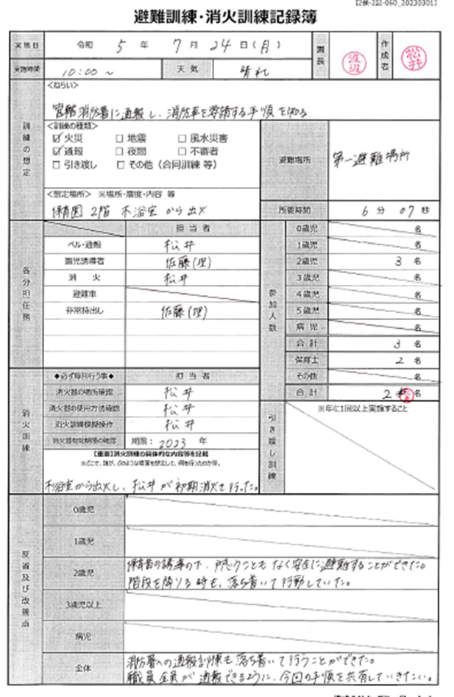 避難訓練・消火訓練記録簿
実施日 令和 5年 7月 24日(月) 園長 渡辺 作成者 松井
実施時間 10:00~ 天気 晴れ
訓練の想定
<ねらい>
消防署に通報し、消防車を要請する手順を知る
<訓練の種類>
☑火災 ☐地震 ☐風水災害
☑通報 ☐夜間 ☐不審者
☐引き渡し ☐その他(合同訓練 等)
避難場所 第一避難場所
<想定場所> ※場所・震度・内容 等
保育園 2階 沐浴室から出火
所要時間 6分 07秒
各分担任務
担当者
ベル・通報 松井
園児誘導者 佐藤(理)
消火 松井
避難車
非常持出し 佐藤(理)
参加人数
0歳児 名
1歳児 名
2歳児 3名
3歳児 名
4歳児 名
5歳児 名
病児 名
合計 3名
保育士 2名
その他 名
合計 2 名
消火訓練
◆必ず毎回行う事◆ 担当者
消火器の場所確認 松井
消火器の使用方法確認 松井
消火訓練模擬操作 松井
消火器有効期限の確認 期限:2023年
【重要】消火訓練の具体的な内容等を記載
沐浴室から出火し、松井が初期消火を行った。
引き渡し訓練
※年に1回以上実施すること
反省及び改善点
0歳児
1歳児
2歳児
保育者の誘導の下、戸惑うこともなく安全に避難することができた。
階段を降りる時も、落ち着いて行動していた。
3歳児以上
病児
全体
消防署への通報訓練も落ち着いて行うことができた。
職員全員が通報できるように、今回の手順を共有していきたい。